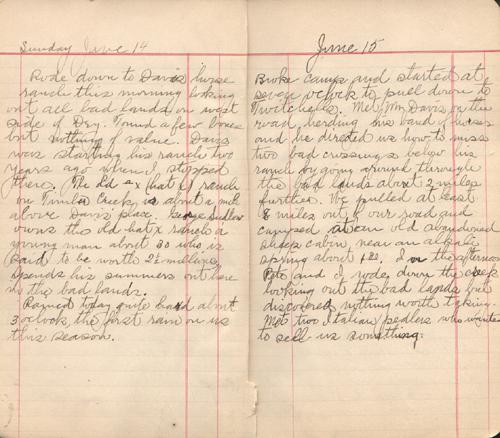 Sunday June 14
Rode down to Davis horse
ranch this morning looking
out all bad lands on west
side of Dry. Found a few bones
but nothing of value. Davis
was starting his ranch two
years ago when I stopped
there. The old hat X ranch
on Creek, is about a mile
above Davis place. George
owns the old hat X ranch a
young man about 30 who is
said to be worth 2½ millions,
spends his summers out here
in the bad lands.
Rained today quite hard about
3 oclock, the first rain on us
this season.
June 15
Broke camp and started at
seven oclock to pull down to
Twitchells. Met Mr Davis on the
road herding his band of horses
and he directed us how to miss
two bad crossings below his
ranch by going around through
the bad lands about 2 miles
further. We pulled at least
8 miles out of our road and
camped at an old abandoned
sheep cabin, near an alkali
spring about 1.30. In the afternoon
Pete and I rode down the creek
looking out the bad lands but
discovered nothing worth taking.
Met two Italian pedlers who wanted
to sell us something.